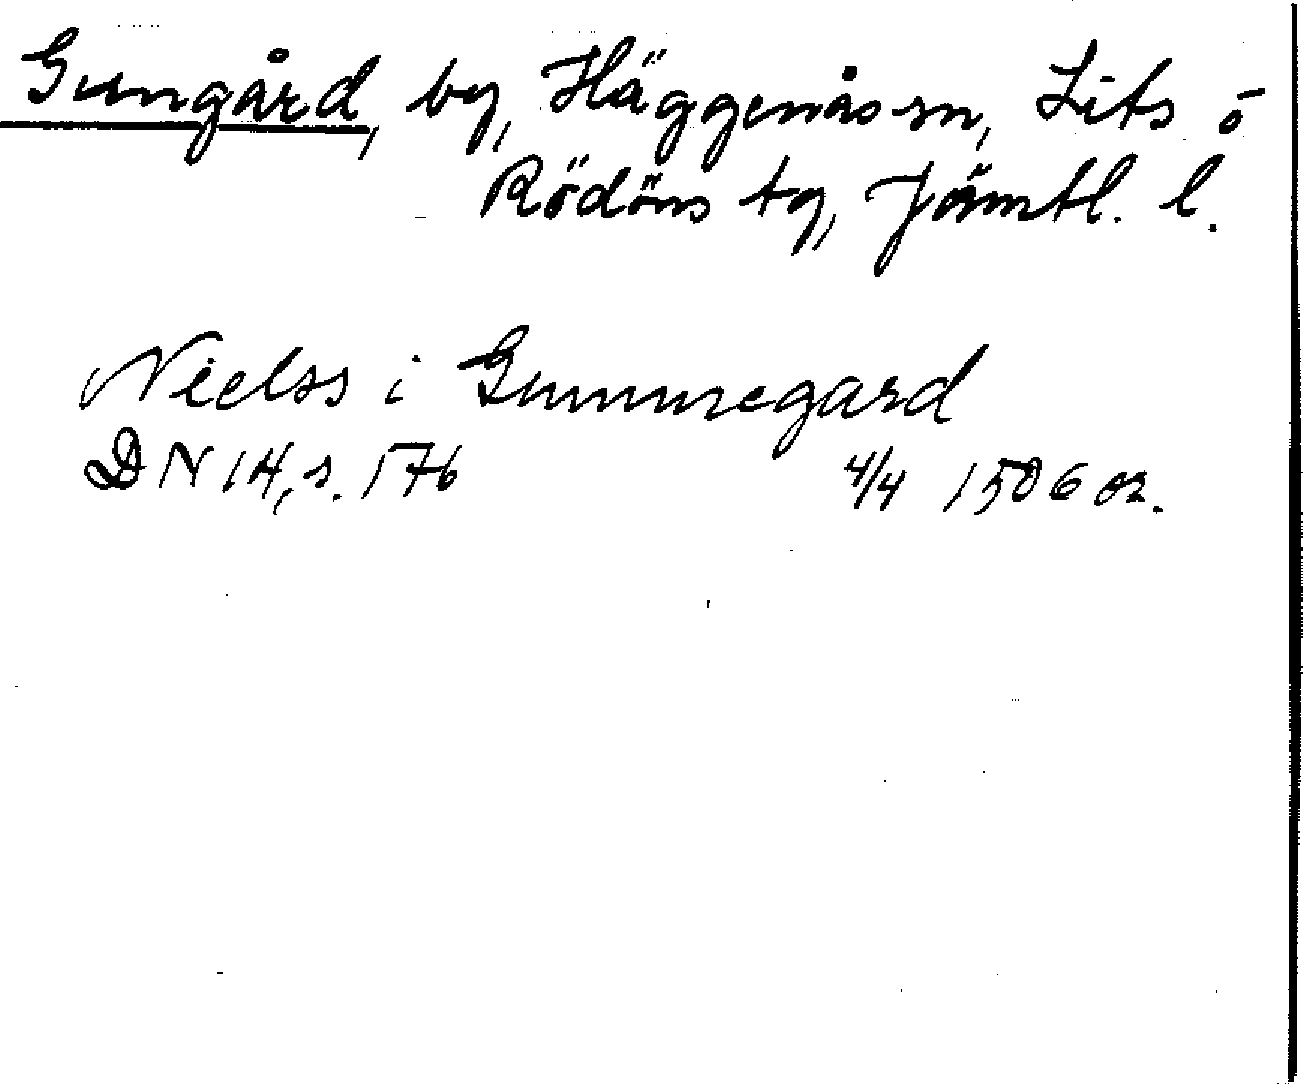 Gungård, by, Häggenås sn, Lits o
Rödöns tg, Jämtl. l.
Nielss i Gunnnegard
DN 14, s. 176 4/4 1506 or.